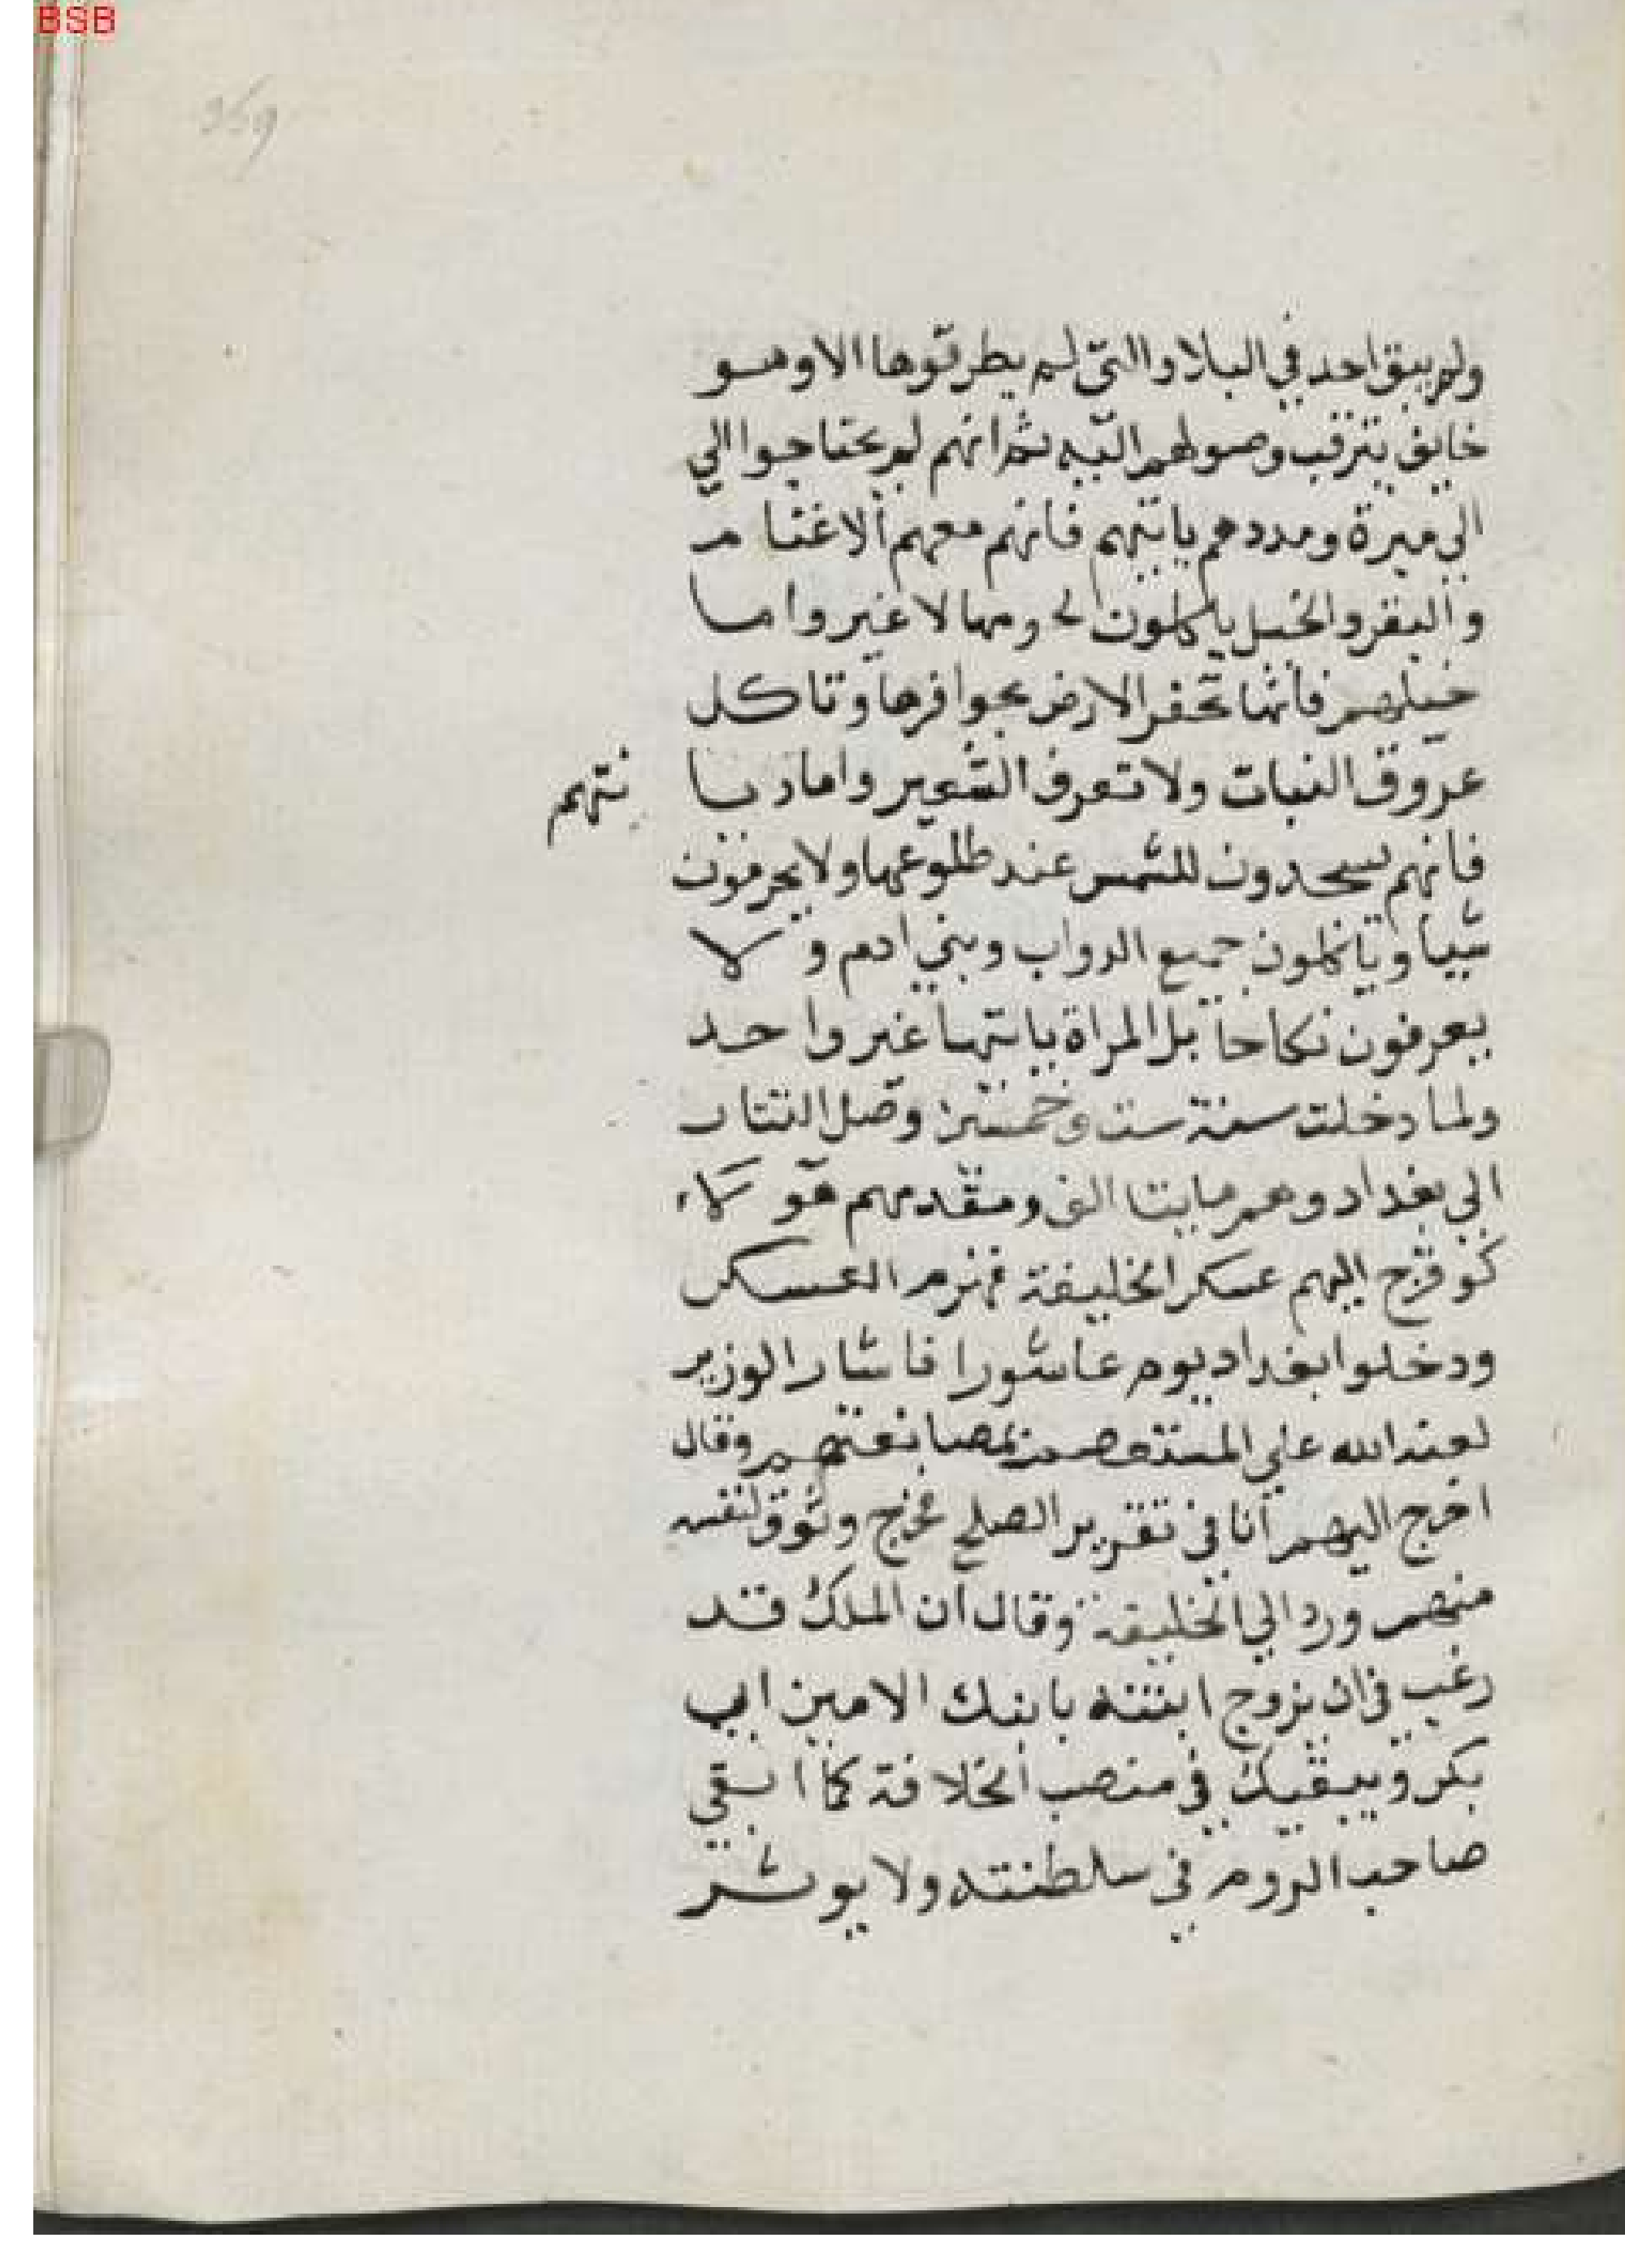 BSB
359
ولم يبق احد في البلاد التي لم يطرقوها الا وهو
خايف يترقب وصولهم اليه ثم انهم لم يحتاجوا الي
الي ميرة ومددهم ياتيهم فانهم معهم الاغنام
والبقر والخيل ياكلون لحومها لا غير واما
خيلهم فانها تحفر الارض بحوافرها وتاكل
عروق النبات ولا تعرف الشعير واما ديا نتهم
فانهم يسجدون للشمس عند طلوعها ولا يحرمون
شييا وياكلون جميع الدواب وبني ادم ولا
يعرفون نكاحا بل المراة ياتيها غير واحد
ولما دخلت سنة ست وخمسين وصل التتار
الي بغداد وهم مايتا الف ومقدمهم هولاء
كو فخرج اليهم عسكر الخليفة فهزم العسكر
ودخلوا بغداد يوم عاشورا فاشار الوزير
لعنه الله علي المستعصم بمصانعتهم وقال
اخرج اليهم انا في تقرير الصلح فخرج وتوثق لنفسه
منهم ورد الي الخليفة وقال ان الملك قد
رغب في ان يزوج ابنته بابنك الامين ابي
بكر ويبقيك في منصب الخلافة كما ابقي
صاحب الروم في سلطنته ولا يوثر